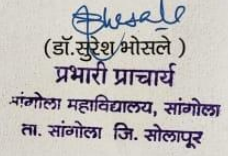 Bhesale
(डॉ.सुरेश भोसले )
प्रभारी प्राचार्य
सांगोला महाविद्यालय, सांगोला
ता. सांगोला जि. सोलापूर